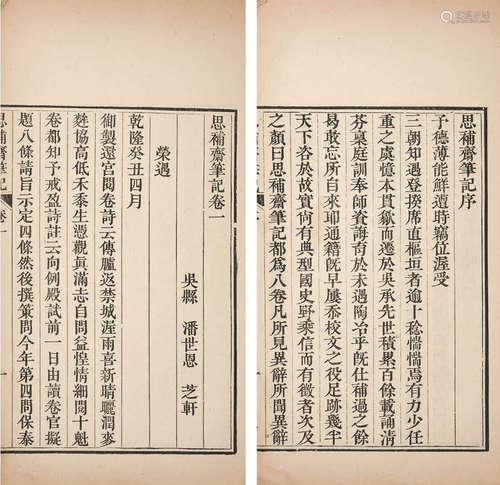 思補齋筆記序
予德薄能鮮遭時竊位渥受
三朝知遇登揆席直樞垣者逾十稔惴惴焉有力少任
重之虞憶本貫歙而遷於吳承先世積累百餘載誦清
芬稟庭訓奉師資誨育於未遇陶冶乎旣仕補過之餘
曷敢忘所自來卬通籍旣早屢忝校文之役足跡幾半
天下咨於故實尚有典型國史野乘信而有徵者次及
之顏曰思補齋筆記都爲八卷凡所見異辭所聞異辭
思補齋筆記卷一
吳縣 潘世恩 芝軒
榮遇
乾隆癸丑四月
御製還宮閱卷詩云傳臚返禁城渥雨喜新晴曬潤麥
麰協高低禾黍生憑觀眞滿志自問益惶情細閱十魁
卷都知予戒盈詩註云向例殿試前一日由讀卷官擬
題八條請旨示定四條然後撰策問今年第四問保泰
思補齋筆記 卷一 一